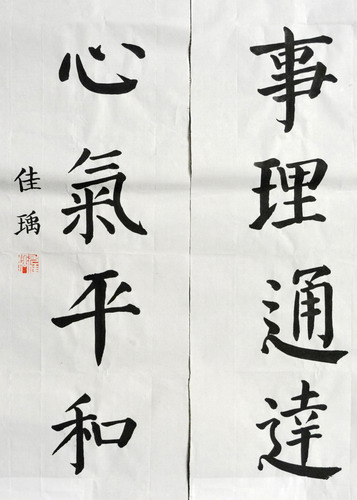 事理通達
心氣平和
佳瑀